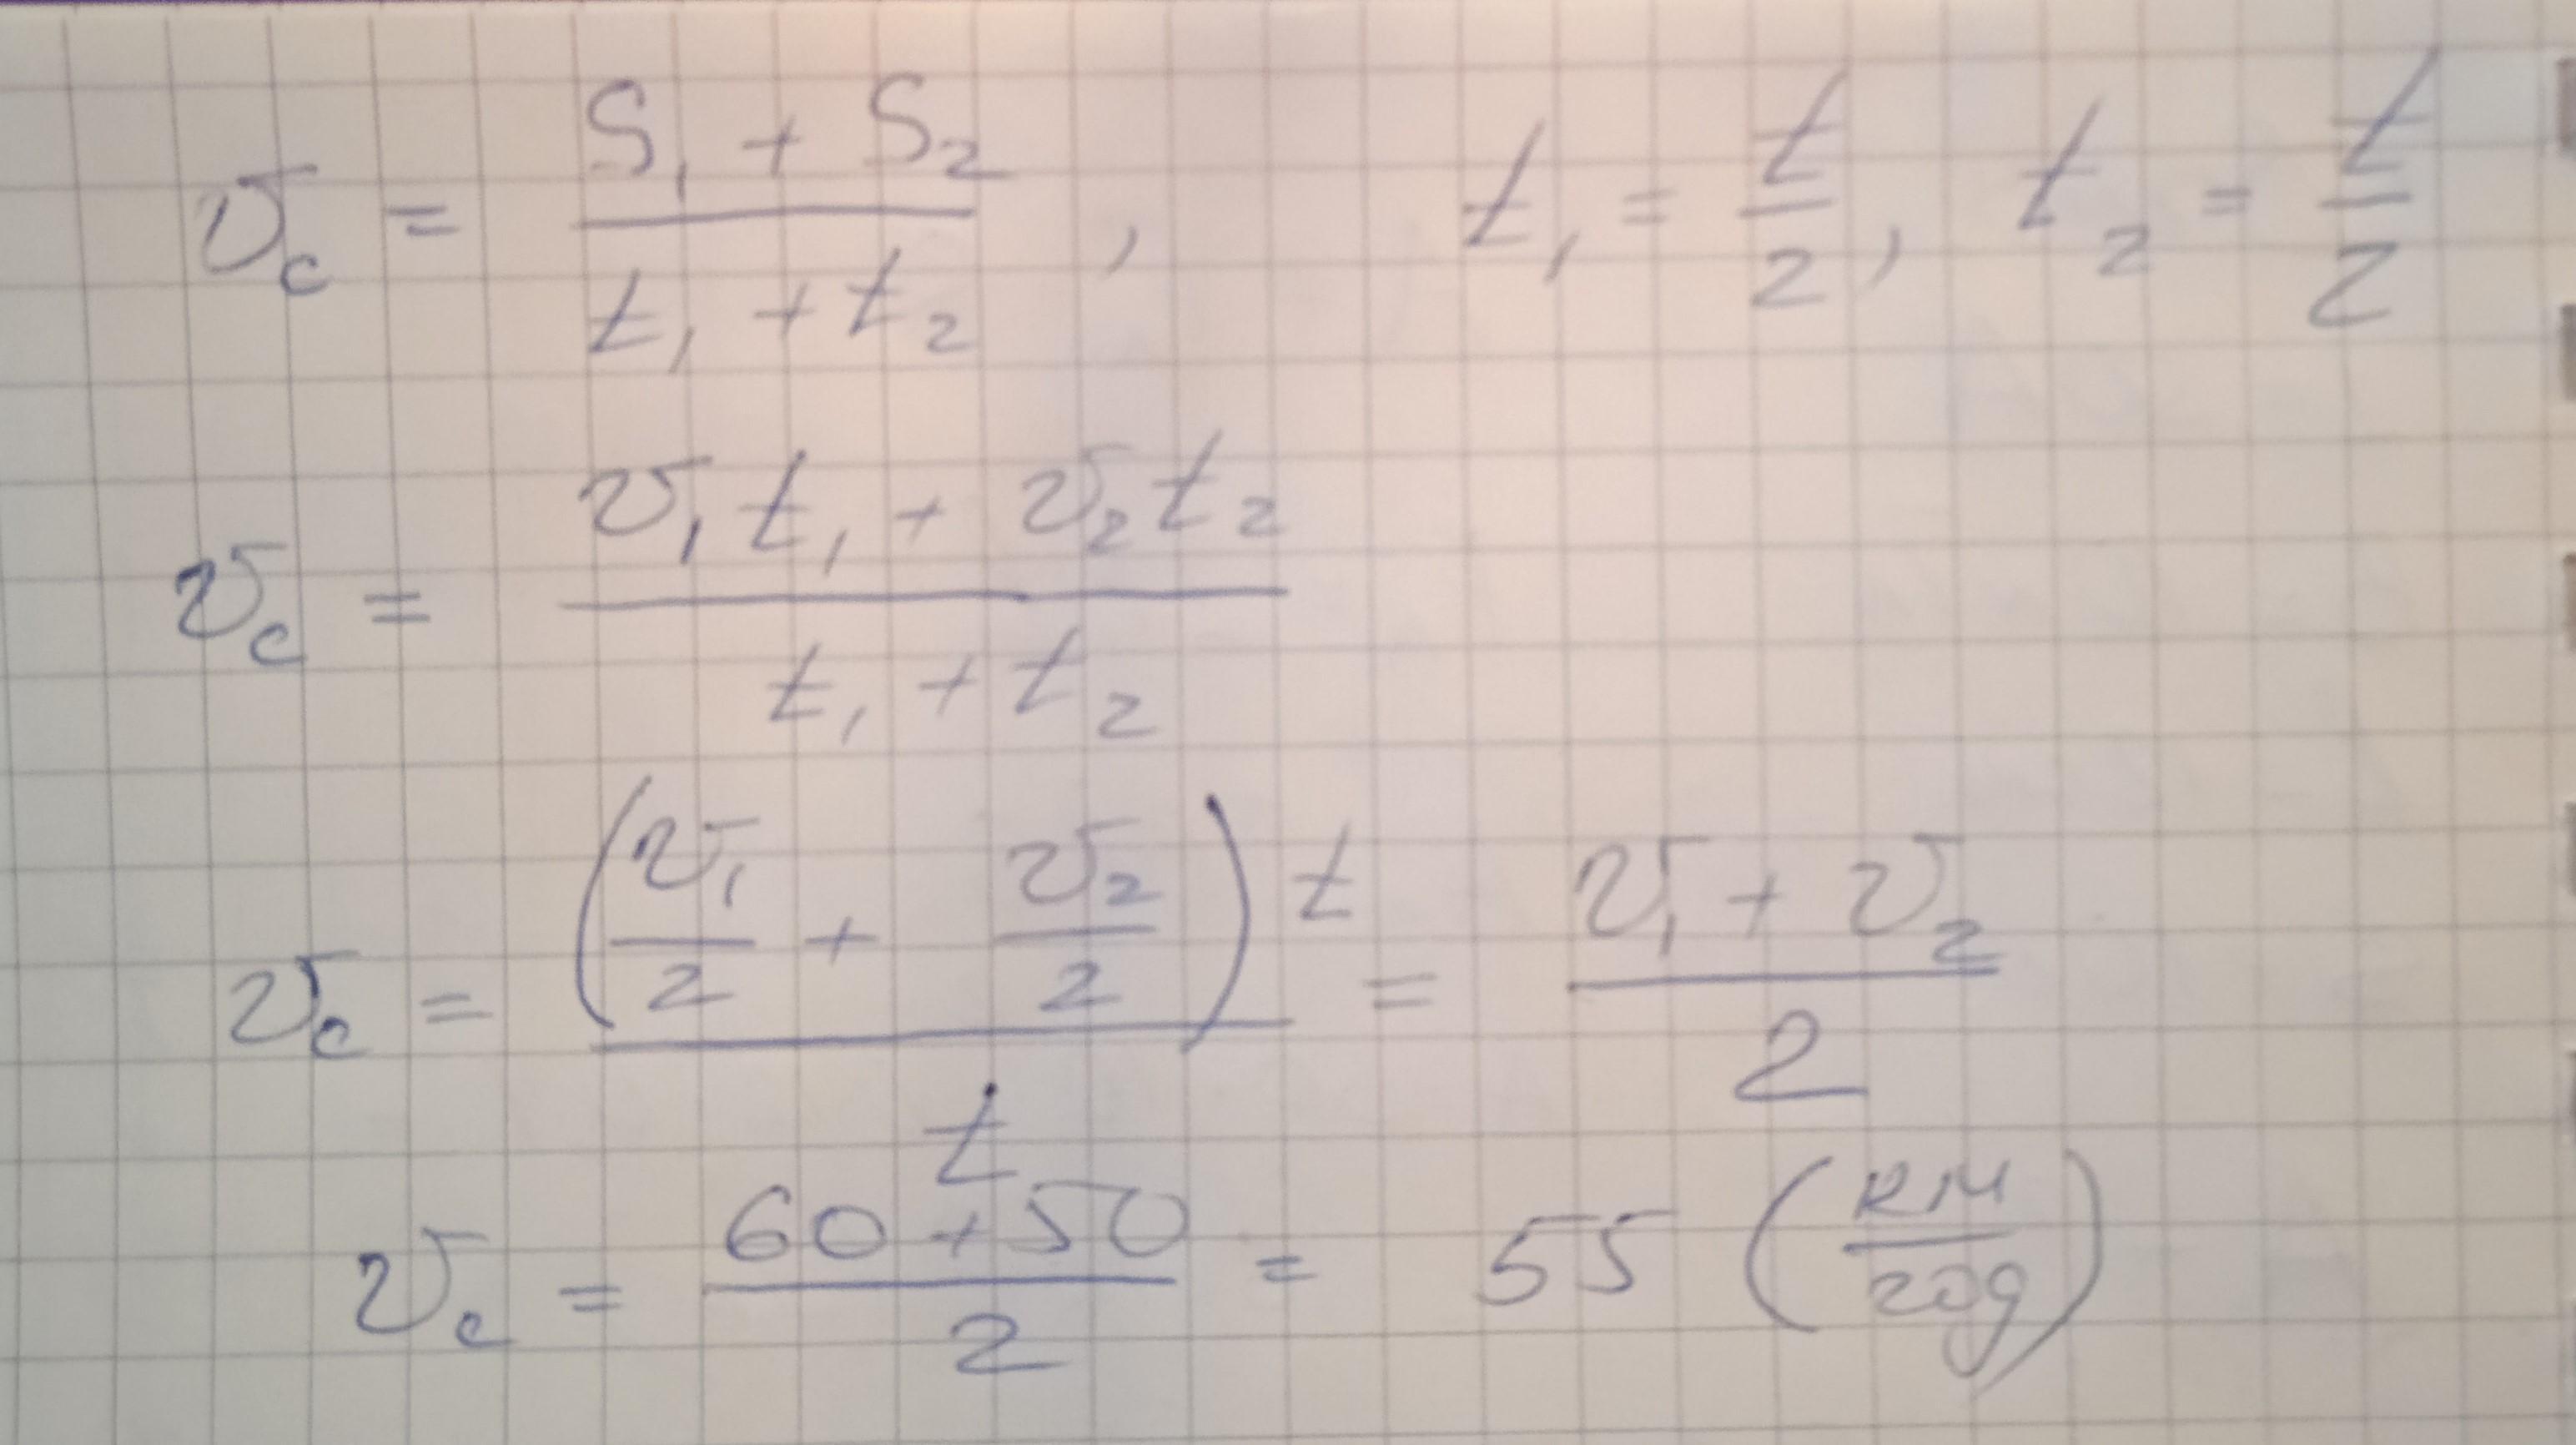 v_c = (S₁ + S₂)/(t₁ + t₂), t₁ = t/2, t₂ = t/2
v_c = (v₁t₁ + v₂t₂)/(t₁ + t₂)
v_c = ((v₁/2 + v₂/2)t)/t = (v₁ + v₂)/2
v_c = (60 + 50)/2 = 55 (км/год)